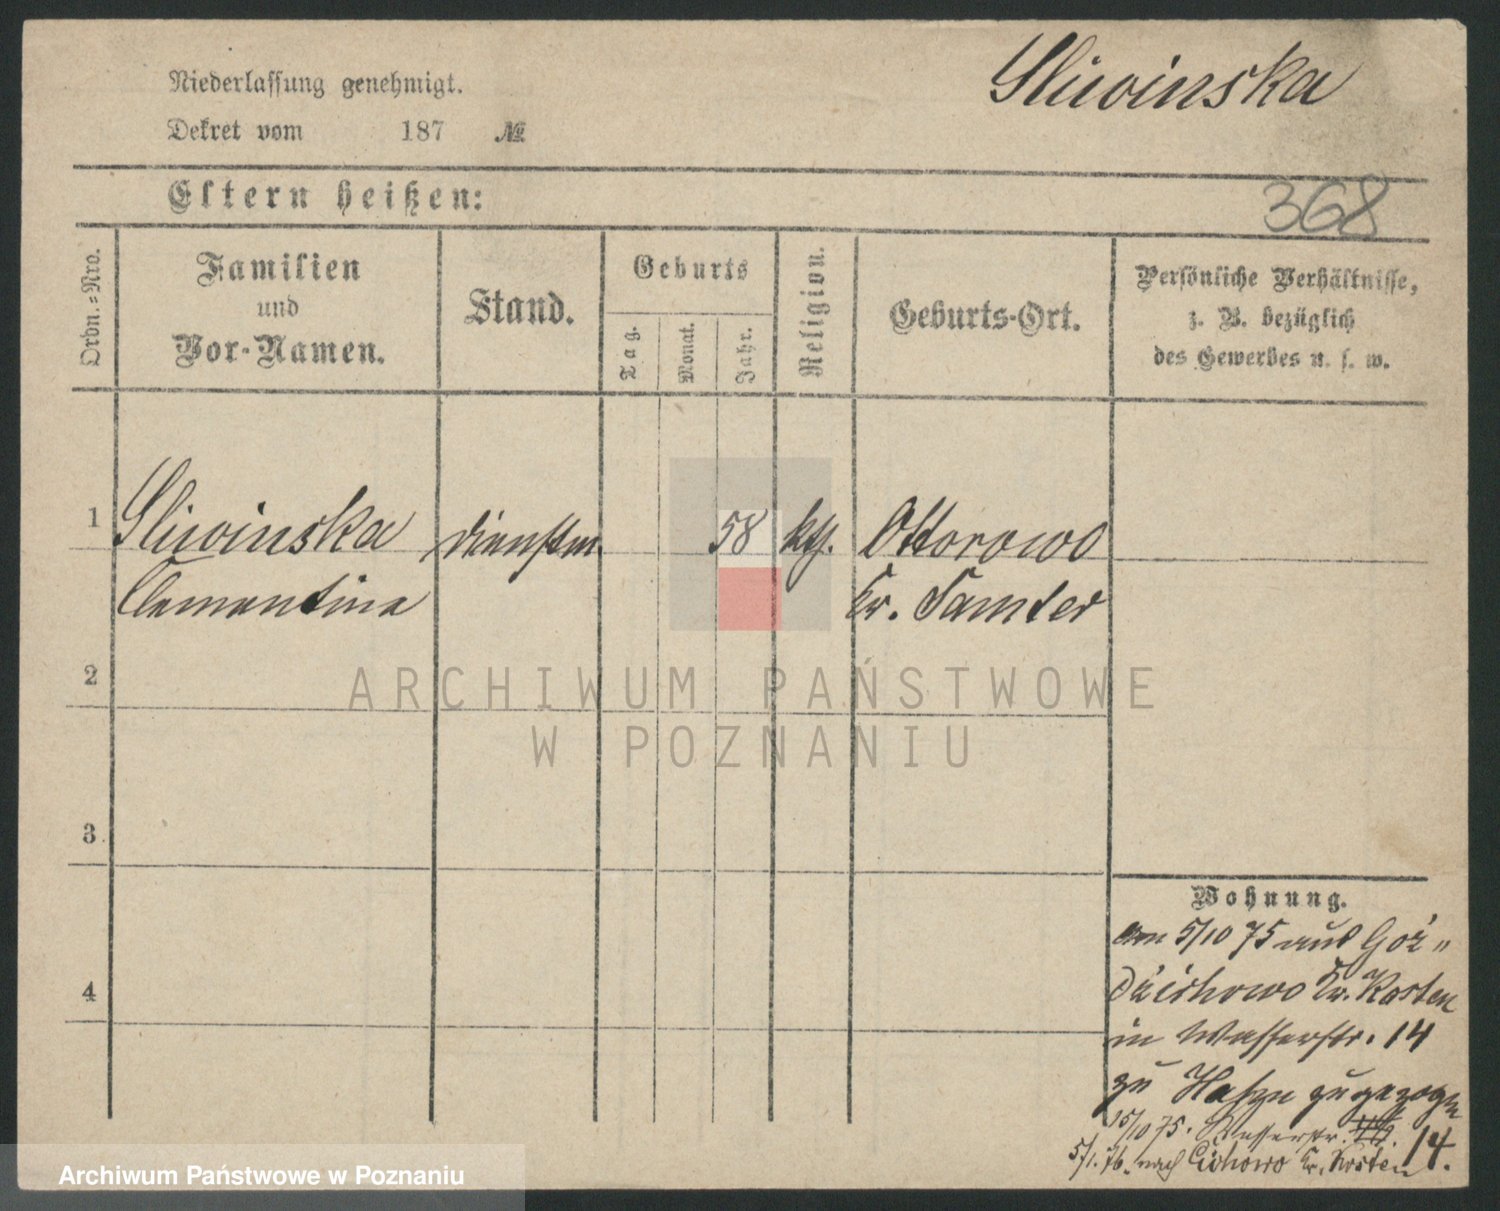 Sliwinska
Niederlassung genehmigt.
Dekret vom 187 №
Eltern heißen:
368
Ordn.=Nro.
Familien
und
Vor-Namen.
Stand.
Geburts
Tag.
Monat.
Jahr.
Religion.
Geburts-Ort.
Persönliche Verhältnisse,
z. B. bezüglich
des Gewerbes u. s. w.
1 Sliwinska dienstm. 58 kth. Ottorowo
Clementina Kr. Samter
2
ARCHIWUM PAŃSTWOWE
W POZNANIU
3
4
Wohnung.
am 5/10 75 aus
Kr. Kosten
in Wasserstr. 14
zu zugezogen
15/10 75. Wasserstr. 14.
5/1. 76. nach Cichowo Kr. Kosten
Archiwum Państwowe w Poznaniu